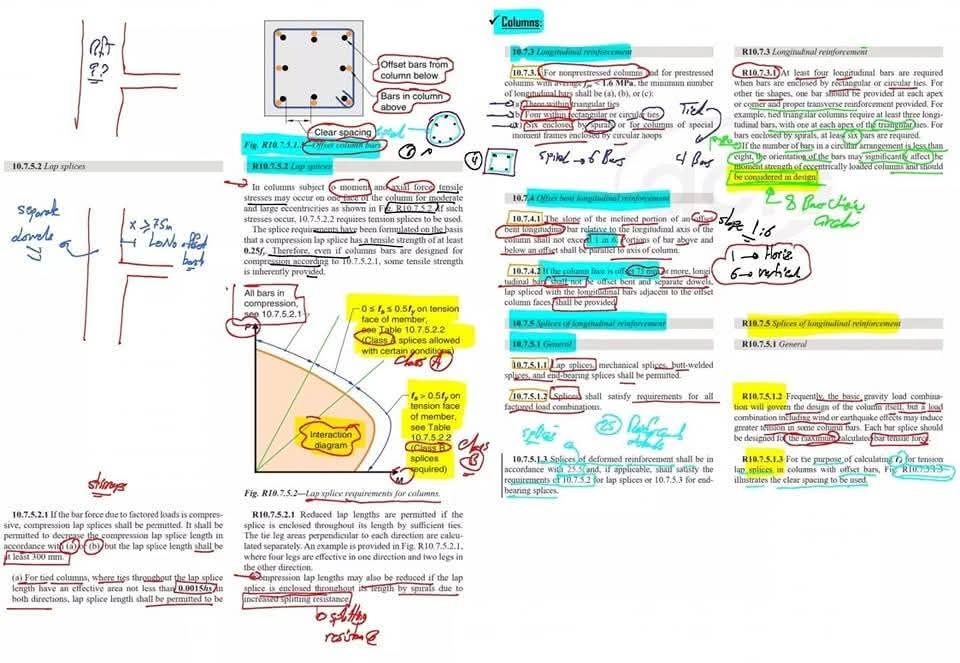 RFT
??
Offset bars from
column below
Bars in column
above
Clear spacing
Fig. R10.7.5.1.3—Offset column bars
10.7.5.2 Lap splices
R10.7.5.2 Lap splices
In columns subject to moment and axial force, tensile
stresses may occur on one face of the column for moderate
and large eccentricities as shown in Fig. R10.7.5.2. If such
stresses occur, 10.7.5.2.2 requires tension splices to be used.
The splice requirements have been formulated on the basis
that a compression lap splice has a tensile strength of at least
0.25fy. Therefore, even if columns bars are designed for
compression according to 10.7.5.2.1, some tensile strength
is inherently provided.
separate
dowels
x ≥ 75m
All bars in
compression,
see 10.7.5.2.1
P
0 ≤ fs ≤ 0.5fy on tension
face of member,
see Table 10.7.5.2.2
(Class A splices allowed
with certain conditions)
Class A
fs > 0.5fy on
tension face
of member,
see Table
10.7.5.2.2
(Class B
splices
required)
Class
B
Interaction
diagram
M
Fig. R10.7.5.2—Lap splice requirements for columns.
stirrups
10.7.5.2.1 If the bar force due to factored loads is compres-
sive, compression lap splices shall be permitted. It shall be
permitted to decrease the compression lap splice length in
accordance with (a) or (b), but the lap splice length shall be
at least 300 mm.
(a) For tied columns, where ties throughout the lap splice
length have an effective area not less than 0.0015hs in
both directions, lap splice length shall be permitted to be
R10.7.5.2.1 Reduced lap lengths are permitted if the
splice is enclosed throughout its length by sufficient ties.
The tie leg areas perpendicular to each direction are calcu-
lated separately. An example is provided in Fig. R10.7.5.2.1,
where four legs are effective in one direction and two legs in
the other direction.
Compression lap lengths may also be reduced if the lap
splice is enclosed throughout its length by spirals due to
increased splitting resistance.
splitting
resistance
✓ Columns:
10.7.3 Longitudinal reinforcement
10.7.3.1 For nonprestressed columns and for prestressed
columns with average fpe < 1.6 MPa, the minimum number
of longitudinal bars shall be (a), (b), or (c):
(a) Three within triangular ties
(b) Four within rectangular or circular ties
(c) Six enclosed by spirals or for columns of special
moment frames enclosed by circular hoops
Tied
4 Bars
spiral → 6 Bars
10.7.4 Offset bent longitudinal reinforcement
10.7.4.1 The slope of the inclined portion of an offset
bent longitudinal bar relative to the longitudinal axis of the
column shall not exceed 1 in 6. Portions of bar above and
below an offset shall be parallel to axis of column.
slope 1:6
1 → Horiz
6 → vertical
10.7.4.2 If the column face is offset 75 mm or more, longi-
tudinal bars shall not be offset bent and separate dowels,
lap spliced with the longitudinal bars adjacent to the offset
column faces, shall be provided.
10.7.5 Splices of longitudinal reinforcement
10.7.5.1 General
10.7.5.1.1 Lap splices, mechanical splices, butt-welded
splices, and end-bearing splices shall be permitted.
10.7.5.1.2 Splices shall satisfy requirements for all
factored load combinations.
splices
25
10.7.5.1.3 Splices of deformed reinforcement shall be in
accordance with 25.5 and, if applicable, shall satisfy the
requirements of 10.7.5.2 for lap splices or 10.7.5.3 for end-
bearing splices.
R10.7.3 Longitudinal reinforcement
R10.7.3.1 At least four longitudinal bars are required
when bars are enclosed by rectangular or circular ties. For
other tie shapes, one bar should be provided at each apex
or corner and proper transverse reinforcement provided. For
example, tied triangular columns require at least three longi-
tudinal bars, with one at each apex of the triangular ties. For
bars enclosed by spirals, at least six bars are required.
If the number of bars in a circular arrangement is less than
eight, the orientation of the bars may significantly affect the
moment strength of eccentrically loaded columns and should
be considered in design.
R10.7.5 Splices of longitudinal reinforcement
R10.7.5.1 General
R10.7.5.1.2 Frequently, the basic gravity load combina-
tion will govern the design of the column itself, but a load
combination including wind or earthquake effects may induce
greater tension in some column bars. Each bar splice should
be designed for the maximum calculated bar tensile force.
R10.7.5.1.3 For the purpose of calculating ℓd for tension
lap splices in columns with offset bars, Fig. R10.7.5.1.3
illustrates the clear spacing to be used.